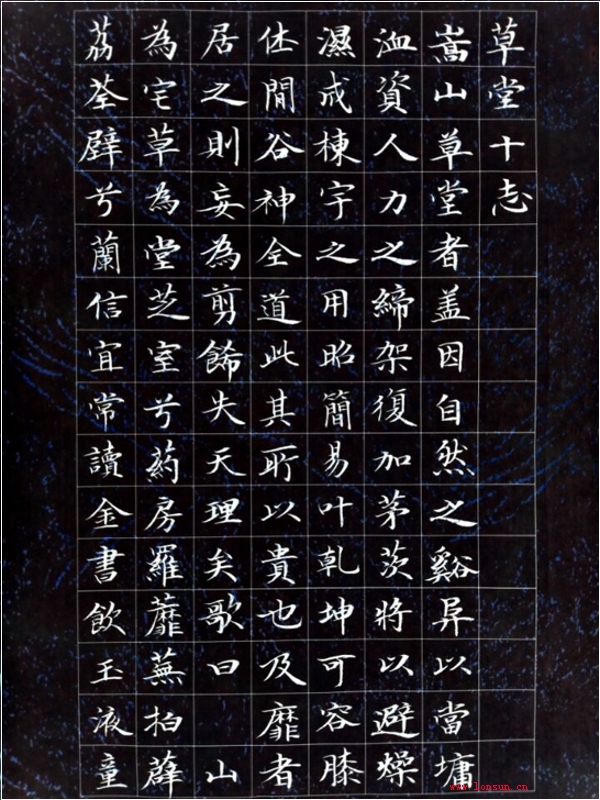 草堂十志
嵩山草堂者盖因自然之谿异以當墉
洫資人力之締架復加茅茨將以避燥
濕成棟宇之用昭簡易叶乾坤可容膝
休閒谷神全道此其所以貴也及靡者
居之則妄為剪餙失天理矣歌曰 山
為宅草為堂芝室兮葯房羅蘼蕪拍薜
荔荃辟兮蘭信宜常讀金書飲玉液童
www.lonsun.cn